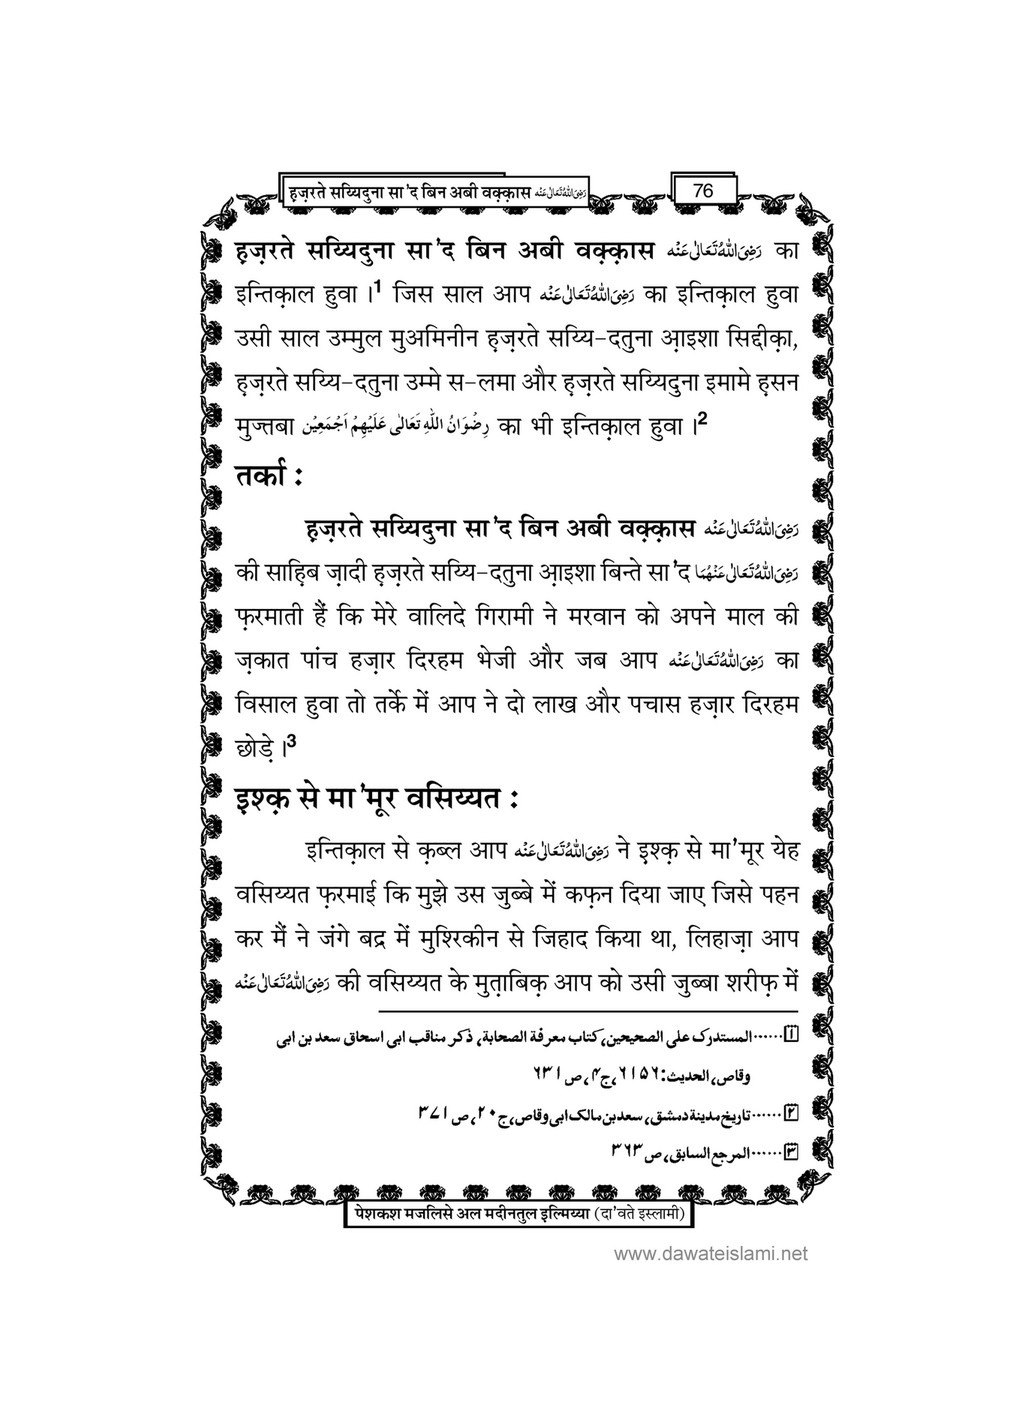 हज़रते सय्यिदुना सा'द बिन अबी वक़्क़ास رَضِیَ اللّٰہُ تَعَالٰی عَنْہ
76
हज़रते सय्यिदुना सा'द बिन अबी वक़्क़ास رَضِیَ اللّٰہُ تَعَالٰی عَنْہ का
इन्तिक़ाल हुवा ।1 जिस साल आप رَضِیَ اللّٰہُ تَعَالٰی عَنْہ का इन्तिक़ाल हुवा
उसी साल उम्मुल मुअमिनीन हज़रते सय्यि-दतुना आ़इशा सिद्दीक़ा,
हज़रते सय्यि-दतुना उम्मे स-लमा और हज़रते सय्यिदुना इमामे हसन
मुज्तबा رِضْوَانُ اللّٰہِ تَعَالٰی عَلَیْہِمْ اَجْمَعِیْن का भी इन्तिक़ाल हुवा ।2
तर्का :
हज़रते सय्यिदुना सा'द बिन अबी वक़्क़ास رَضِیَ اللّٰہُ تَعَالٰی عَنْہ
की साहिब ज़ादी हज़रते सय्यि-दतुना आ़इशा बिन्ते सा'द رَضِیَ اللّٰہُ تَعَالٰی عَنْہُمَا
फ़रमाती हैं कि मेरे वालिदे गिरामी ने मरवान को अपने माल की
ज़कात पांच हज़ार दिरहम भेजी और जब आप رَضِیَ اللّٰہُ تَعَالٰی عَنْہ का
विसाल हुवा तो तर्के में आप ने दो लाख और पचास हज़ार दिरहम
छोड़े ।3
इश्क़ से मा'मूर वसिय्यत :
इन्तिक़ाल से क़ब्ल आप رَضِیَ اللّٰہُ تَعَالٰی عَنْہ ने इश्क़ से मा'मूर येह
वसिय्यत फ़रमाई कि मुझे उस जुब्बे में कफ़न दिया जाए जिसे पहन
कर मैं ने जंगे बद्र में मुश्रिकीन से जिहाद किया था, लिहाज़ा आप
رَضِیَ اللّٰہُ تَعَالٰی عَنْہ की वसिय्यत के मुत़ाबिक़ आप को उसी जुब्बा शरीफ़ में
۱……المستدرک علی الصحیحین، کتاب معرفة الصحابة، ذکر مناقب ابی اسحاق سعد بن ابی
وقاص، الحدیث: ۶۱۵۶، ج۴، ص۶۳۱
۲……تاریخ مدینة دمشق، سعد بن مالک ابی وقاص، ج۲۰، ص۳۷۱
۳……المرجع السابق، ص۳۶۳
पेशकश मजलिसे अल मदीनतुल इल्मिय्या (दा'वते इस्लामी)
www.dawateislami.net